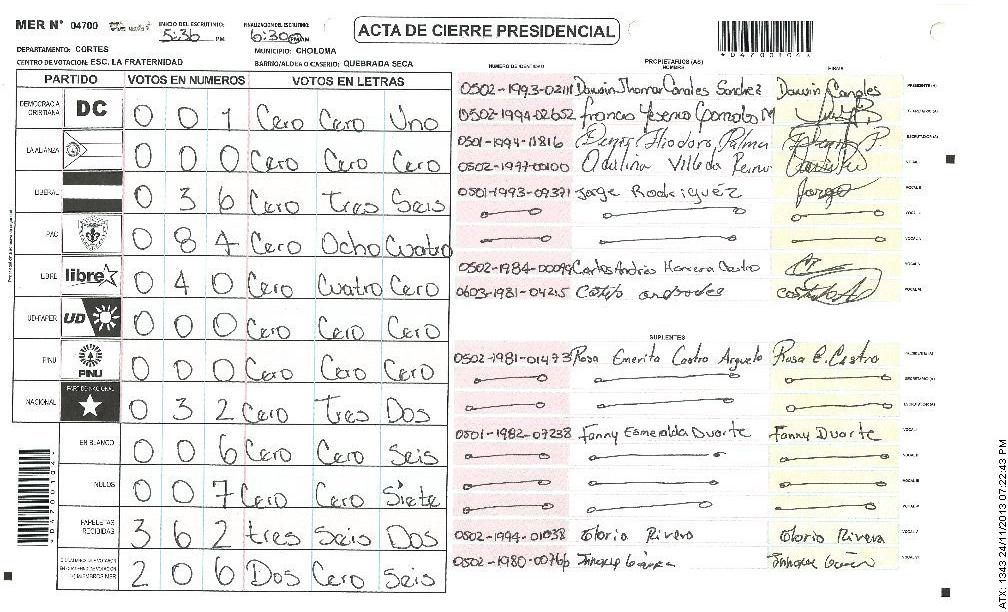 MER N° 04700 INICIO DEL ESCRUTINIO: 5:36 PM FINALIZACION DEL ESCRUTINIO: 6:30 PM
ACTA DE CIERRE PRESIDENCIAL
*D4700104*
DEPARTAMENTO: CORTES MUNICIPIO: CHOLOMA
CENTRO DE VOTACION: ESC. LA FRATERNIDAD BARRIO/ALDEA O CASERIO: QUEBRADA SECA
PARTIDO VOTOS EN NUMEROS VOTOS EN LETRAS
DEMOCRACIA CRISTIANA DC 0 0 1 Cero Cero Uno
LA ALIANZA 0 0 0 Cero Cero Cero
LIBERAL 0 3 6 Cero tres Seis
PAC 0 8 4 Cero Ocho Cuatro
LIBRE libre 0 4 0 Cero Cuatro Cero
UD-FAPER UD 0 0 0 Cero Cero Cero
PINU PINU 0 0 0 Cero Cero Cero
NACIONAL PARTIDO NACIONAL 0 3 2 Cero Tres Dos
EN BLANCO 0 0 6 Cero Cero Seis
NULOS 0 0 7 Cero Cero Siete
PAPELETAS RECIBIDAS 3 6 2 tres Seis Dos
2 0 6 Dos Cero Seis
PROPIETARIOS (AS)
NUMERO DE IDENTIDAD NOMBRE FIRMA
0502-1993-02111 Darwin Jhomar Canales Sanchez Darwin Canales PRESIDENTE(A)
0502-1994-02652 M
0501-1994-11816 Palma
0502-1997-00100 Villeda
0501-1993-09371 Jorge Rodriguéz Jorge
0502-1984-00099 Carlos Andrés Herrera Castro
0603-1981-04215
SUPLENTES
0502-1981-01473 Rosa Emerita Castro Argueta Rosa E. Castro
0501-1982-07238 Fanny Esmeralda Duarte Fanny Duarte
0502-1994-01038 Gloria Rivera Gloria Rivera
0502-1980-00766
*D4700104*
ATX: 1343 24/11/2013 07:22:43 PM